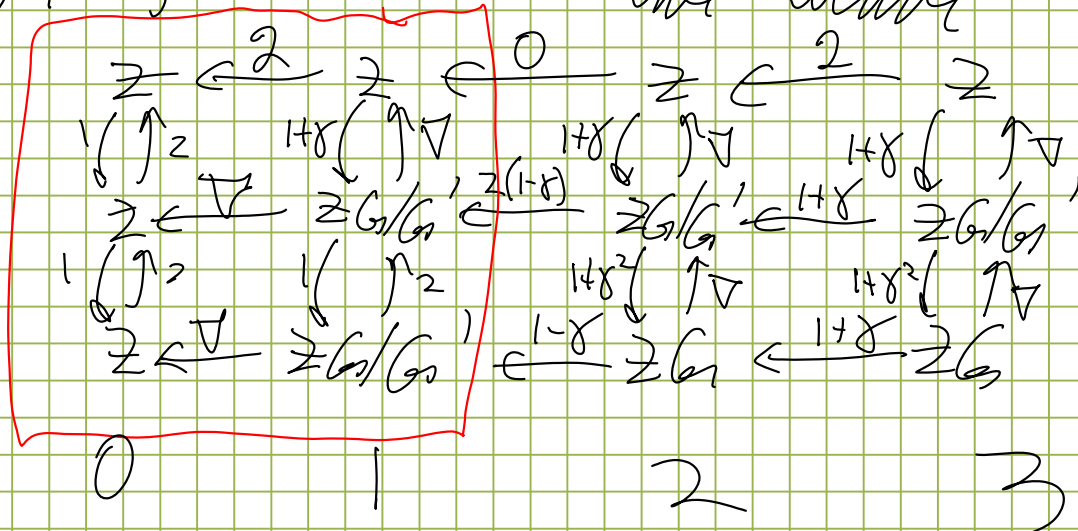 Z ← 2 Z ← 0 Z ← 2 Z
1 2 1+γ ∇ 1+γ ∇ 1+γ ∇
Z ← ∇ ZG/G' ← 2(1-γ) ZG/G' ← 1+γ ZG/G'
1 2 1 2 1+γ² ∇ 1+γ² ∇
Z ← ∇ ZG/G' ← 1-γ ZG ← 1+γ ZG
0 1 2 3